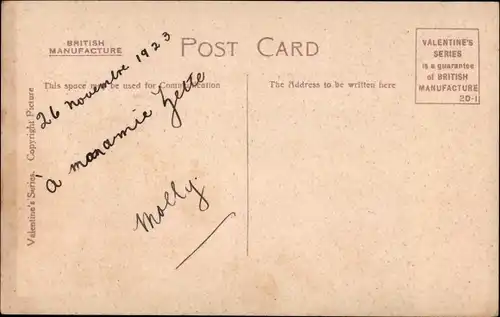 BRITISH
MANUFACTURE
POST CARD
VALENTINE'S
SERIES
is a guarantee
of BRITISH
MANUFACTURE
20-1
This space may be used for Communication
The Address to be written here
Valentine's Series. Copyright Picture
26 novembre 1923
à monamie Zette
Molly.